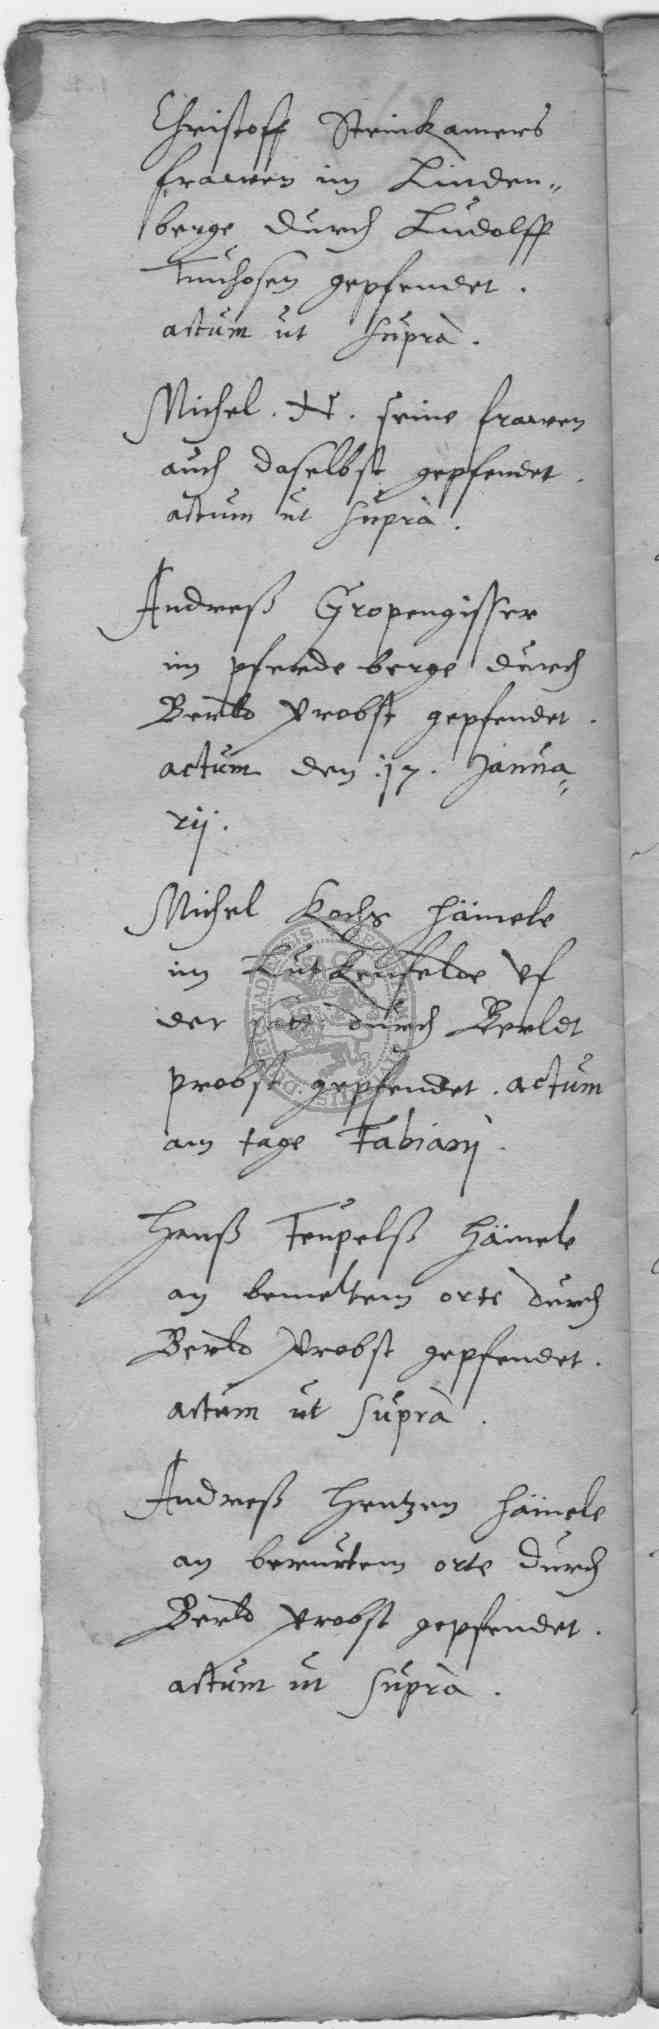 Christoff Steinkamers
frawen im Linden„
berge durch Ludolff
gepfendet.
actum ut suprà.
Michel. N. seine frawen
auch daselbst gepfendet.
actum ut suprà.
Andreß Gropengisser
im pferde berge durch
Bertld Probst gepfendet.
actum den .17. Janua„
rij.
Michel Kochs hämele
im Lutkenfelde vf
der durch Berldt
probst gepfendet. actum
am tage Fabianj.
Hanß Teupelß hämele
an bemeltem orte durch
Bertld Probst gepfendet.
actum ut suprà.
Andreß Hentzen hämele
an berurtem orte durch
Bertld Probst gepfendet.
actum ut suprà.